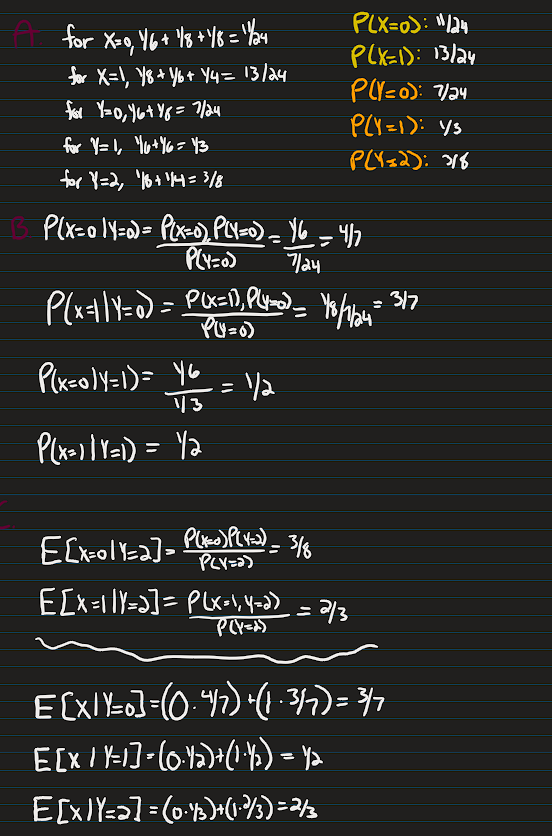 A
for X=0, 1/6 + 1/8 + 1/8 = 11/24
for X=1, 1/8 + 1/6 + 1/4 = 13/24
for Y=0, 1/6 + 1/8 = 7/24
for Y=1, 1/6 + 1/6 = 1/3
for Y=2, 1/8 + 1/4 = 3/8
P(X=0): 11/24
P(X=1): 13/24
P(Y=0): 7/24
P(Y=1): 1/3
P(Y=2): 3/8
B P(X=0|Y=0) = P(X=0), P(Y=0) / P(Y=0) = 1/6 / 7/24 = 4/7
P(X=1|Y=0) = P(X=1), P(Y=0) / P(Y=0) = 1/8 / 7/24 = 3/7
P(X=0|Y=1) = 1/6 / 1/3 = 1/2
P(X=1|Y=1) = 1/2
E[X=0|Y=2] = P(X=0)P(Y=2) / P(Y=2) = 3/8
E[X=1|Y=2] = P(X=1, Y=2) / P(Y=2) = 2/3
E[X|Y=0] = (0·4/7) + (1·3/7) = 3/7
E[X|Y=1] = (0·1/2) + (1·1/2) = 1/2
E[X|Y=2] = (0·1/3) + (1·2/3) = 2/3